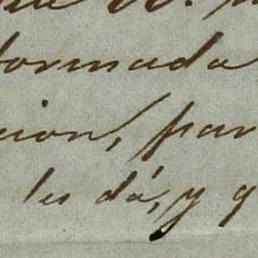 formada
cion, par
les dá, y q